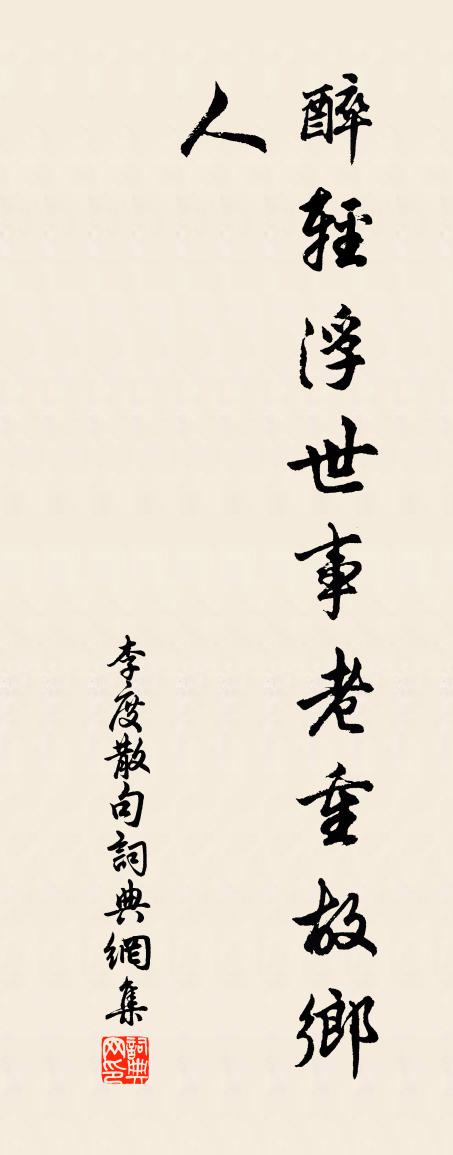 醉輕浮世事老重故鄉
人
李度散句詞典網集
詞典网印